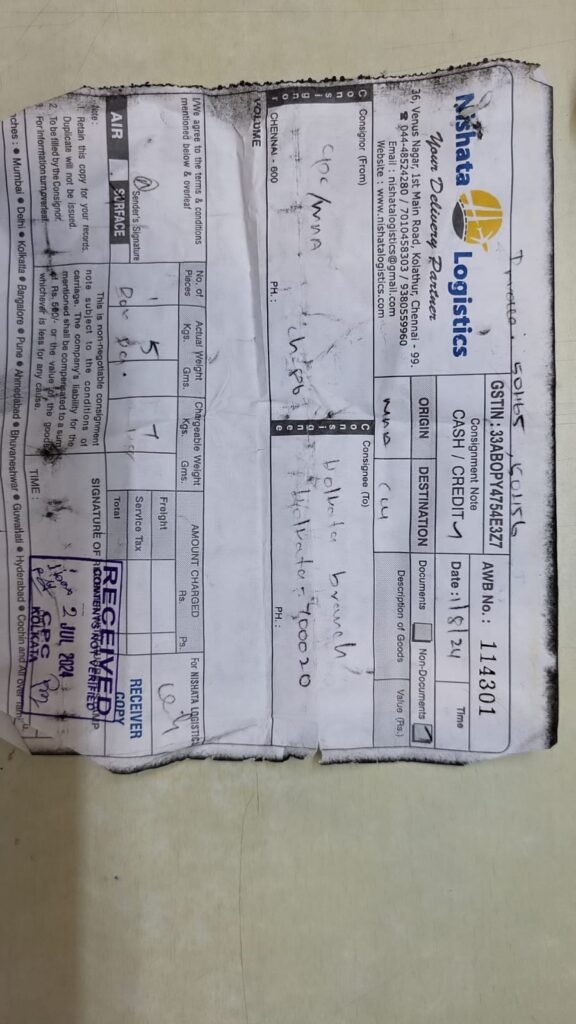 501165, 501156
Nishata Logistics
Your Delivery Partner
36, Venus Nagar, 1st Main Road, Kolathur, Chennai - 99.
☎ 044-48524280 / 7010458303 / 9380559960
Email : nishatalogistics@gmail.com
Website : www.nishatalogistics.com
GSTIN : 33ABOPY4754E3Z7
Consignment Note
CASH / CREDIT
AWB No. : 114301
Date : 1/8/24
Time
ORIGIN
DESTINATION
Documents
Non-Documents
Description of Goods
Value (Rs.)
Consignor (From)
Consignor
CPC/MAA
CHENNAI - 600
PH. :
Consignee (To)
Consignee
Kolkata branch
Kolkata - 700020
PH. :
VOLUME
I/We agree to the terms & conditions
mentioned below & overleaf
Sender's Signature
AIR
SURFACE
No. of
Pieces
Actual Weight
Kgs. Gms.
Chargeable Weight
Kgs. Gms.
1
5
7
AMOUNT CHARGED
Rs. Ps.
Freight
Service Tax
Total
For NISHATA LOGISTIC
RECEIVER
COPY
Note :
1. Retain this copy for your records.
Duplicate will not be issued.
2. To be filled by the Consignor.
For Information turn overleaf.
This is non-negotiable consignment
note subject to the conditions of
carriage. The company's liability for the
mentioned shall be compensated to a sum
of Rs. 500/- or the value of the goods
whichever is less for any cause.
SIGNATURE OF
TIME :
RECEIVED
CONTENTS NOT VERIFIED
2 JUL 2024
CPC
KOLKATA
ches : ● Mumbai ● Delhi ● Kolkatta ● Bangalore ● Pune ● Ahmedabad ● Bhuvaneshwar ● Guwahati ● Hyderabad ● Cochin and All over